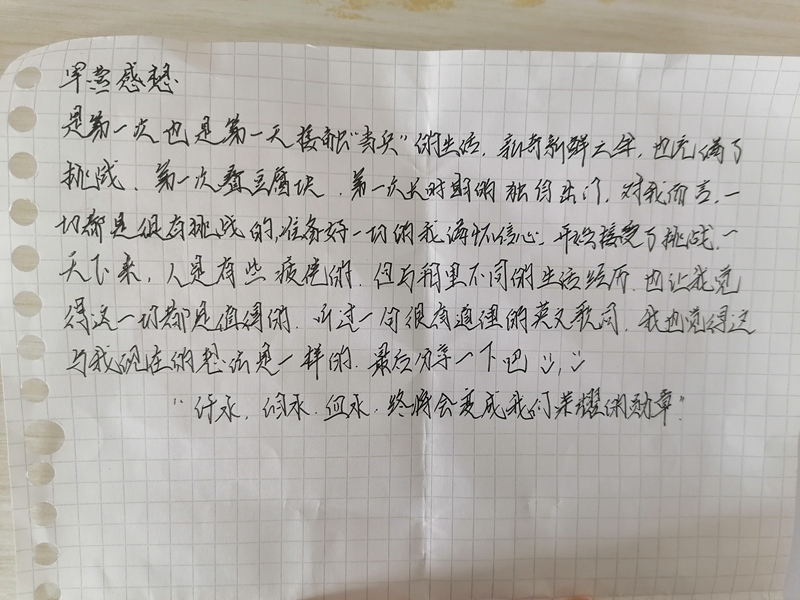 军营感想
是第一次也是第一天接触“当兵”的生活,新奇新鲜之余,也充满了
挑战、第一次叠豆腐块、第一次长时期的独自出门,对我而言,一
切都是很有挑战的,准备好一切的我满怀信心,开始接受了挑战,一
天下来,人是有些疲倦的,但与稍里不同的生活经历,也让我觉
得这一切都是值得的,听过一句很有道理的英文歌词,我也觉得这
与我现在的想法是一样的,最后分享一下吧
“汗水,泪水,血水,终将会变成我们荣耀的勋章”